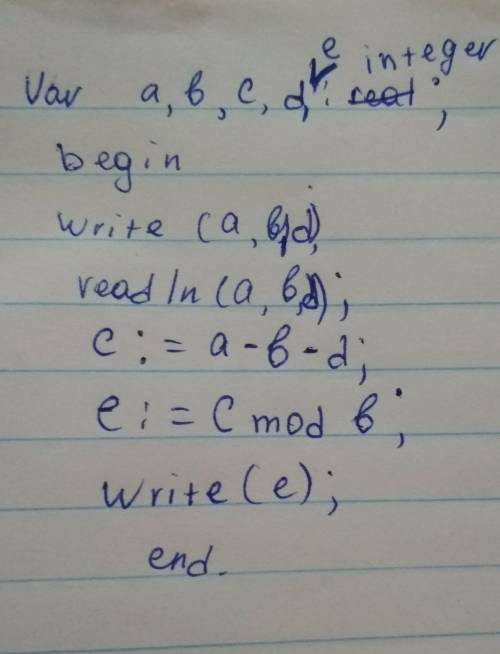 Var a, b, c, d, e : integer;
begin
write (a, b, d);
readln (a, b, d);
c := a - b - d;
e := c mod b;
write (e);
end.